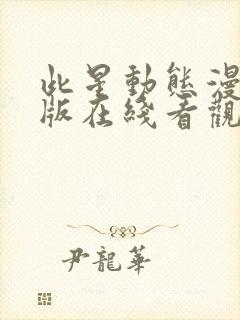 此星動態漫
版在綫看觀
尹龍華